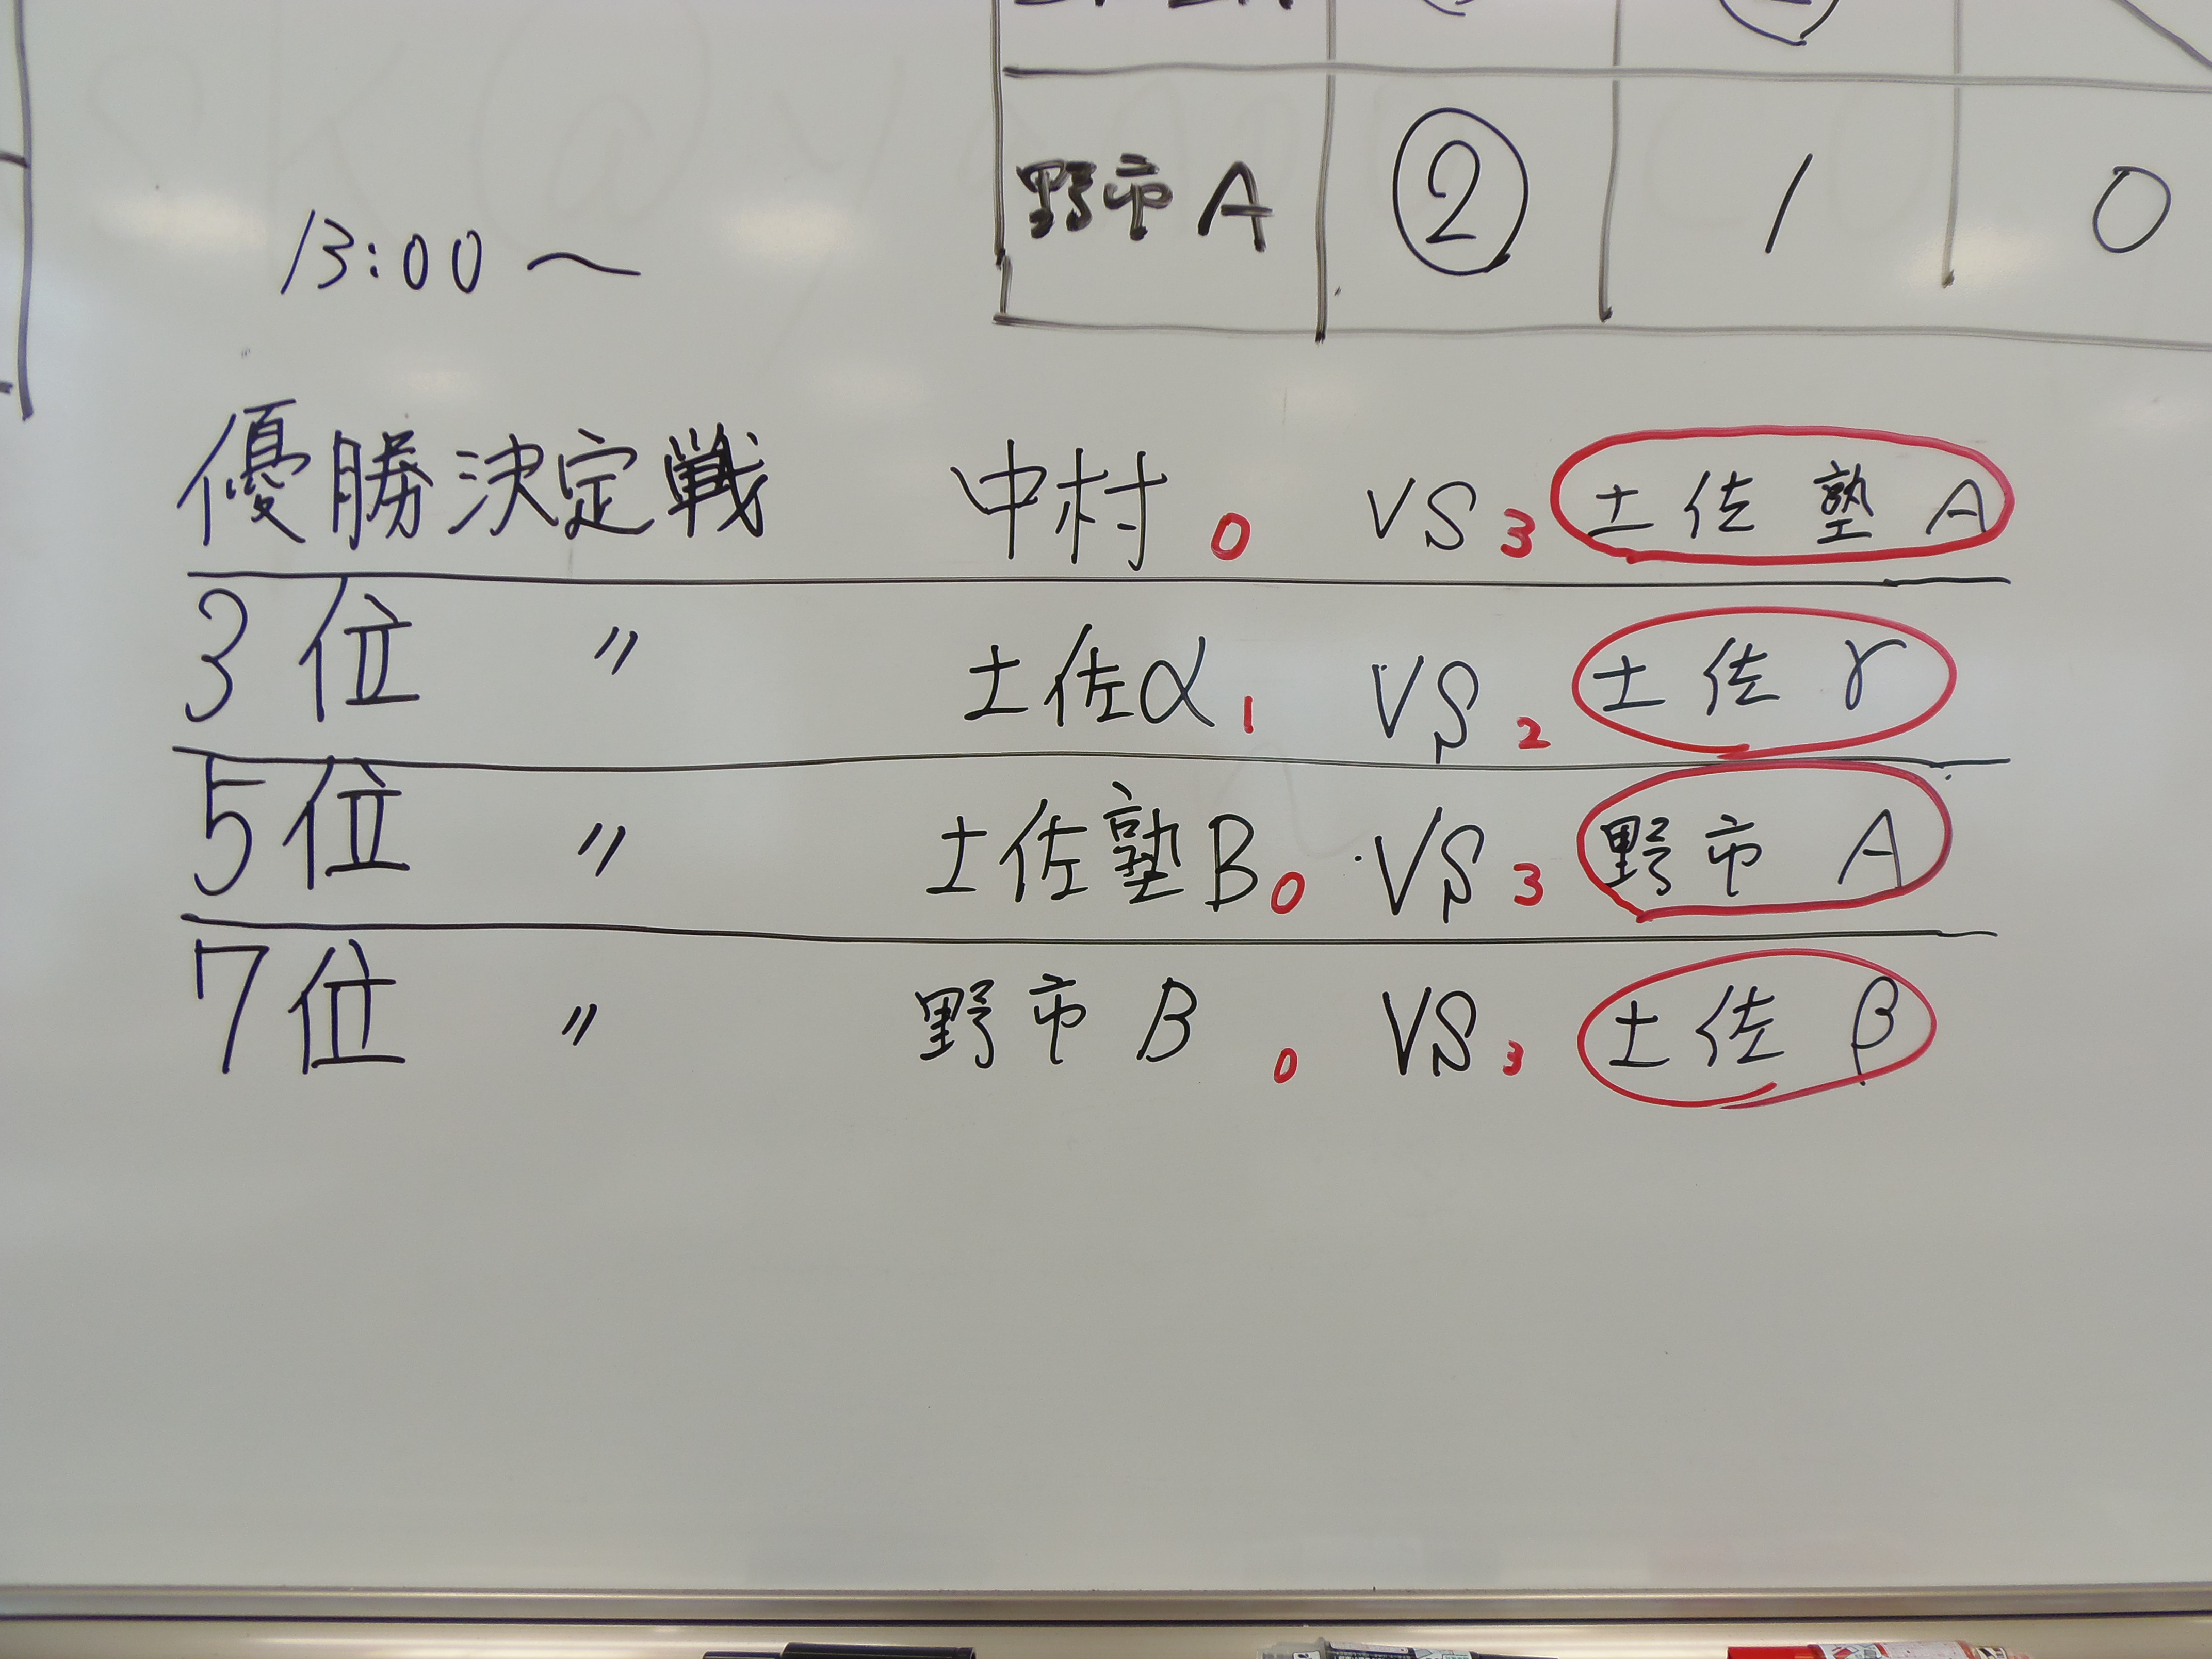 野市A ② 1 0
13:00～
優勝決定戦 中村 0 VS 3 土佐塾A
3位 〃 土佐α 1 VS 2 土佐γ
5位 〃 土佐塾B 0 VS 3 野市A
7位 〃 野市B 0 VS 3 土佐β